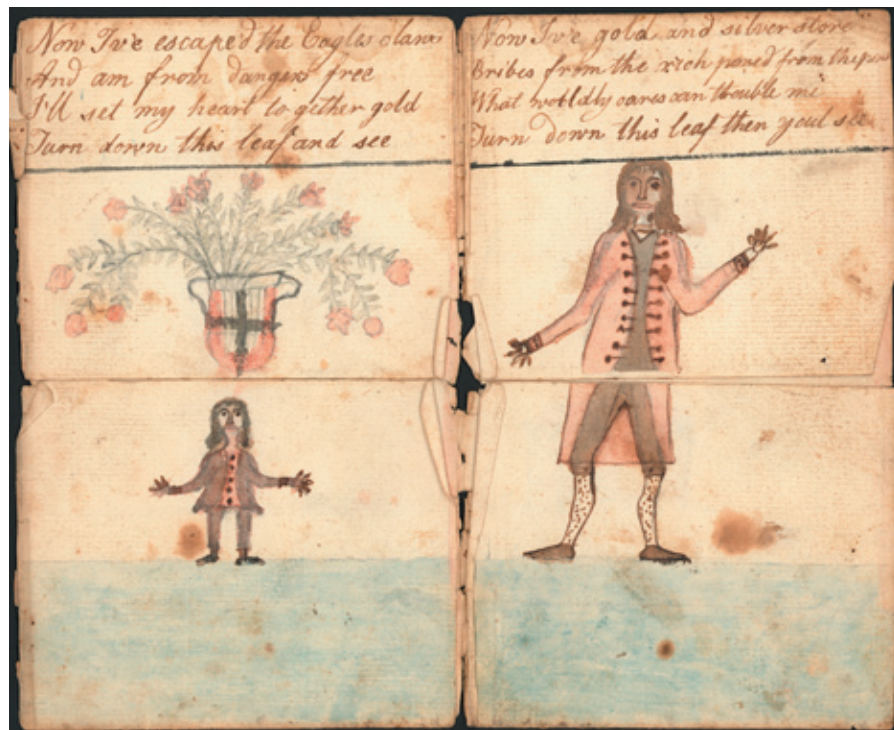 Now I've escaped the Eagles claws
And am from dangers free
I'll set my heart to gether gold
Turn down this leaf and see
Now I've gold and silver store
Bribes from the rich pow'd from the poor
What worldly cares can trouble me
Turn down this leaf then youl see